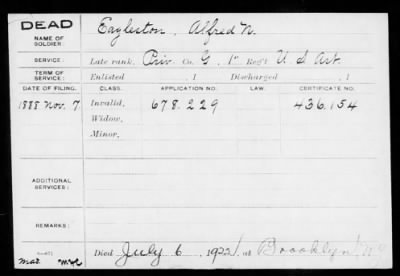 DEAD
NAME OF SOLDIER: Eagleston, Alfred N.
SERVICE: Late rank, Priv Co. G, 1" Reg't U. S. Art.
TERM OF SERVICE: Enlisted , 1 Discharged , 1
DATE OF FILING. CLASS. APPLICATION NO. LAW. CERTIFICATE NO.
1888 Nov. 7 Invalid, 678.229 436.154
Widow,
Minor,
ADDITIONAL SERVICES:
REMARKS:
Died July 6, 1922, at Brooklyn N.Y.